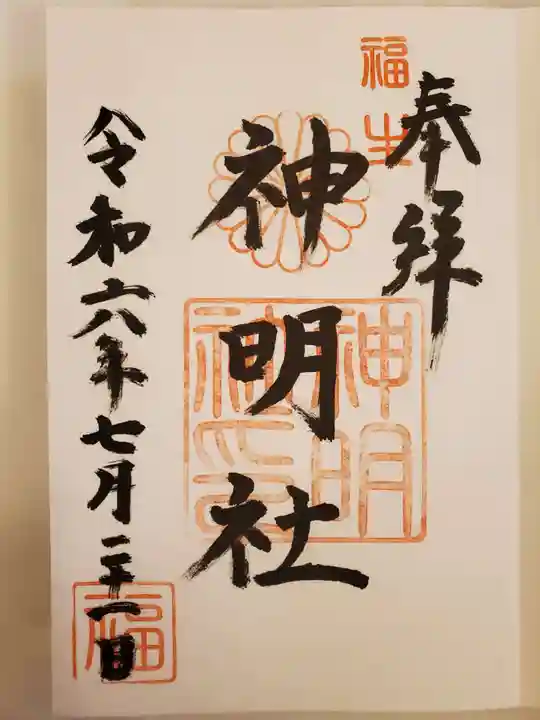 奉拝
福生
神明社
神明
社印
令和六年七月二十一日
福